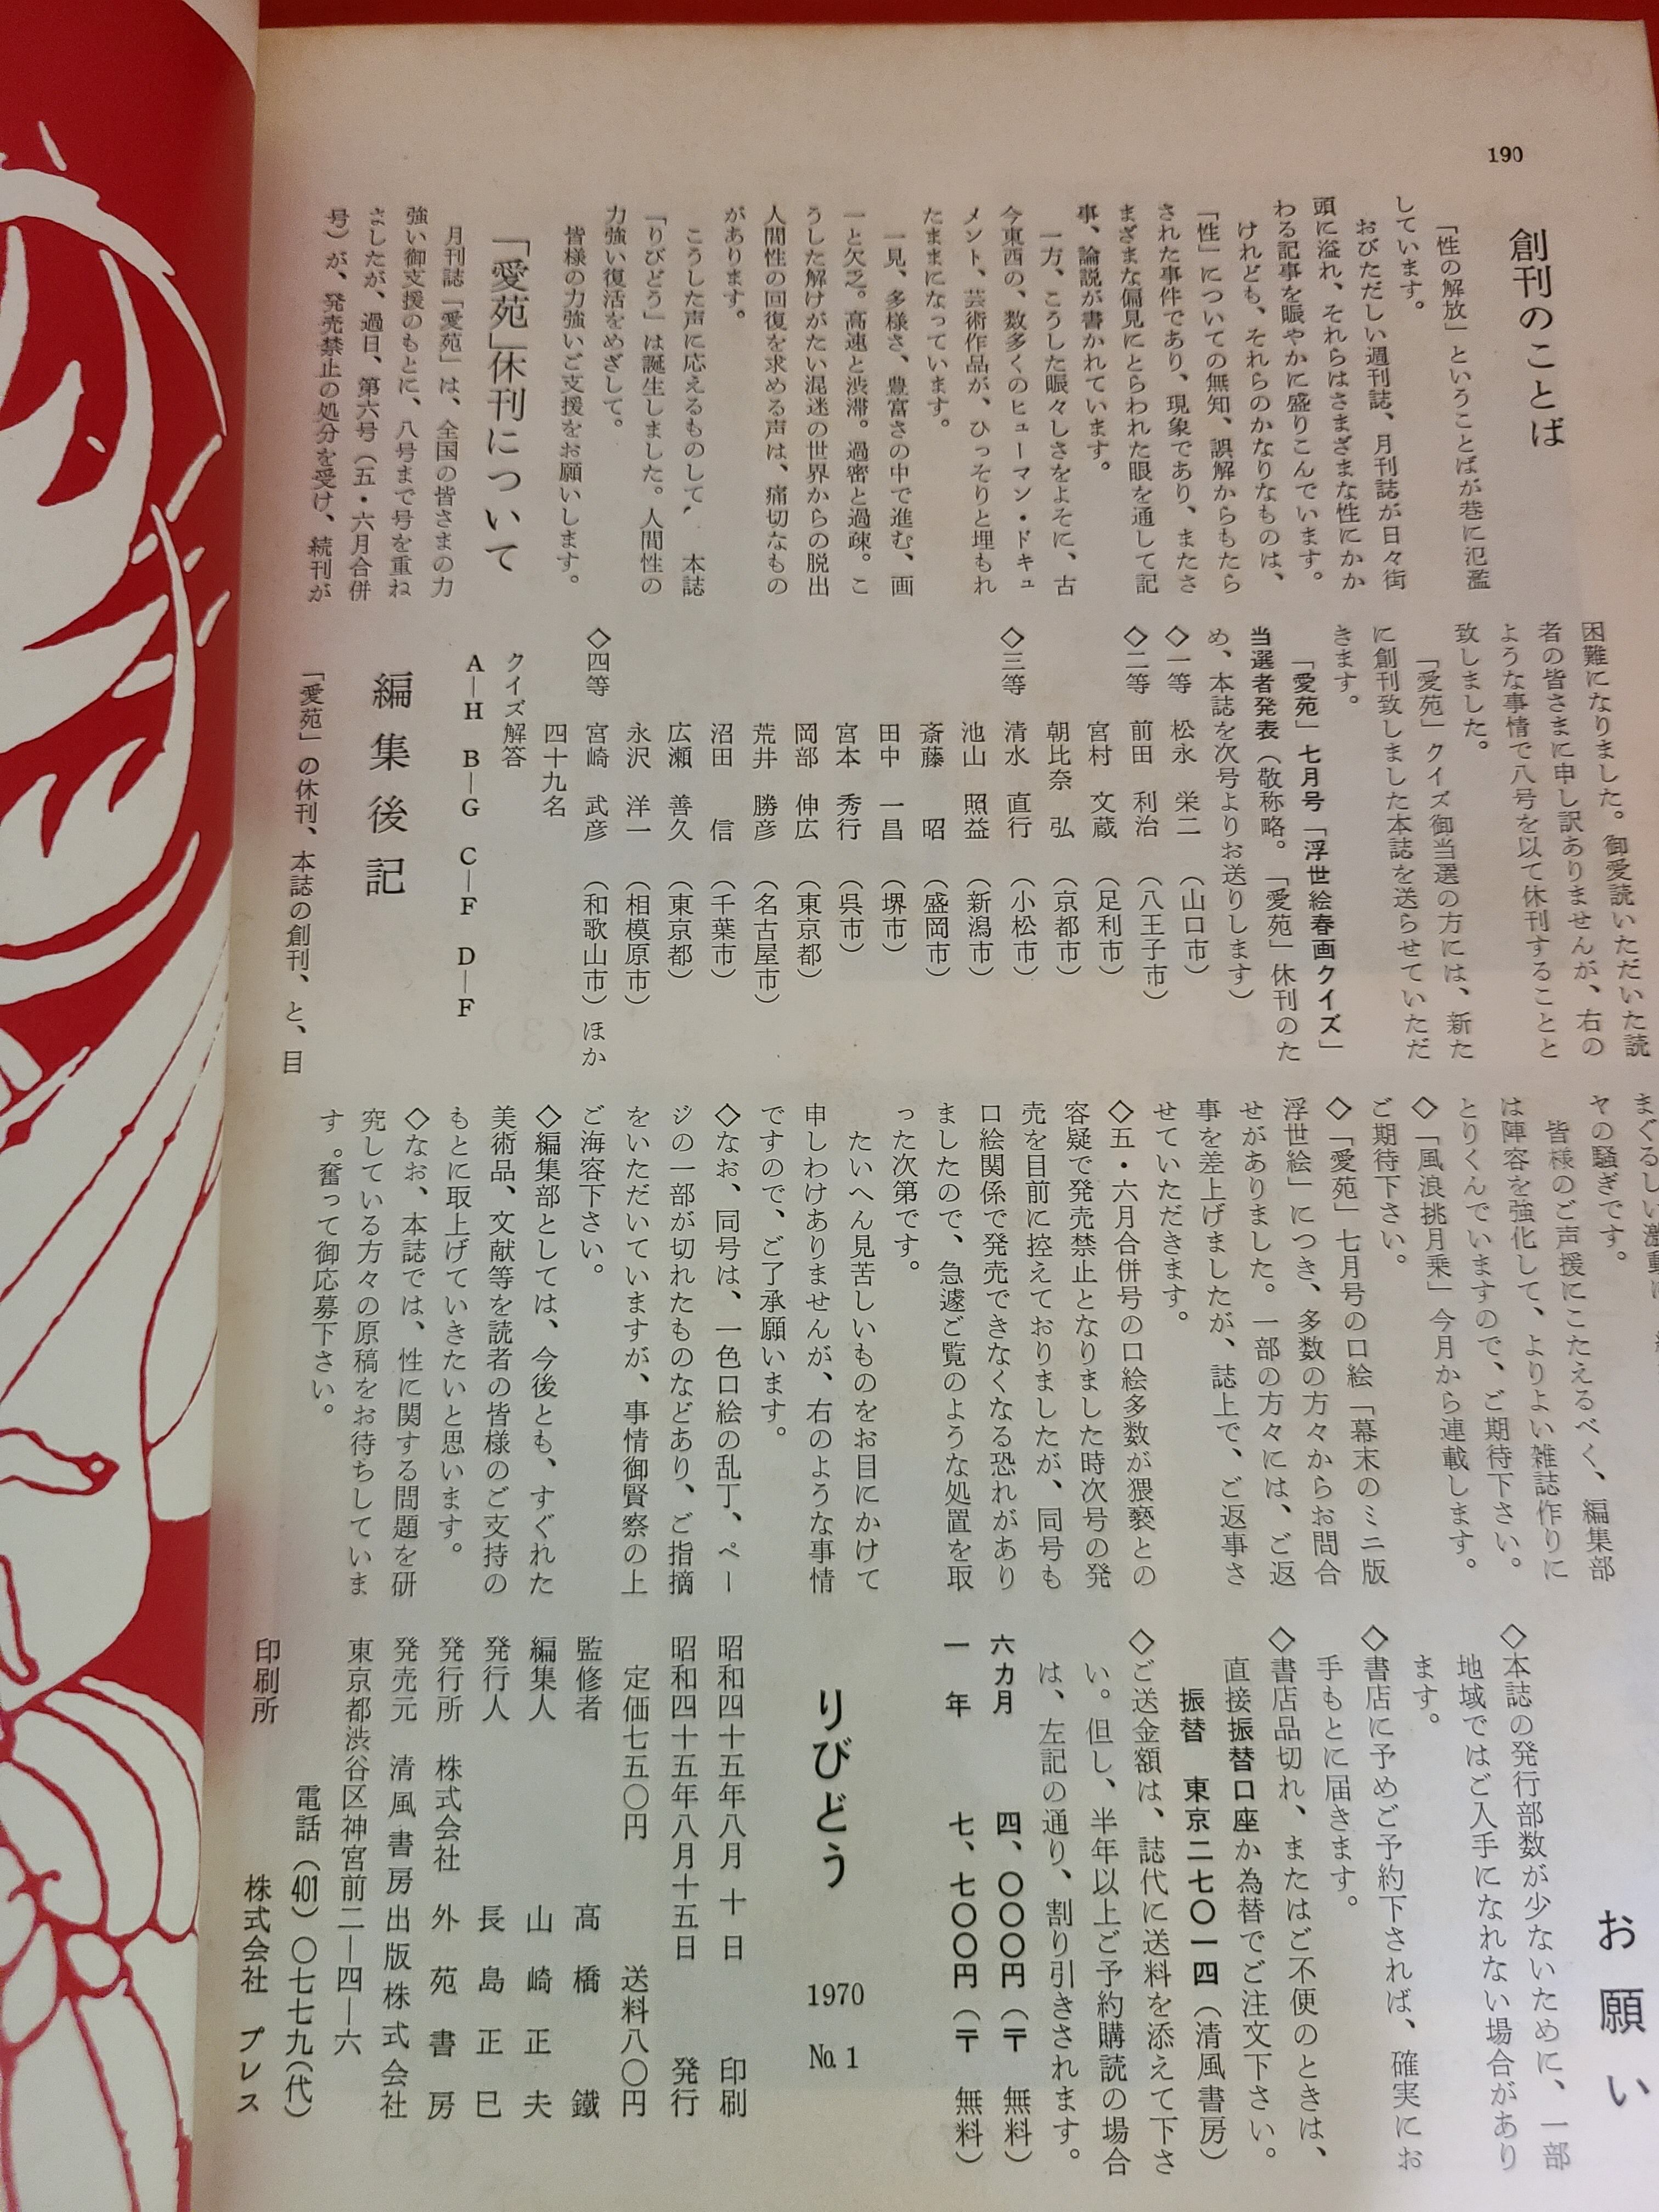 190
創刊のことば
「性の解放」ということばが巷に氾濫
しています。
おびただしい週刊誌、月刊誌が日々街
頭に溢れ、それらはさまざまな性にかか
わる記事を賑やかに盛りこんでいます。
けれども、それらのかなりなものは、
「性」についての無知、誤解からもたら
された事件であり、現象であり、またさ
まざまな偏見にとらわれた眼を通して記
事、論説が書かれています。
一方、こうした賑々しさをよそに、古
今東西の、数多くのヒューマン・ドキュ
メント、芸術作品が、ひっそりと埋もれ
たままになっています。
一見、多様さ、豊富さの中で進む、画
一と欠乏。高速と渋滞。過密と過疎。こ
うした解けがたい混迷の世界からの脱出
人間性の回復を求める声は、痛切なもの
があります。
こうした声に応えるものして、本誌
「りびどう」は誕生しました。人間性の
力強い復活をめざして。
皆様の力強いご支援をお願いします。
「愛苑」休刊について
月刊誌「愛苑」は、全国の皆さまの力
強い御支援のもとに、八号まで号を重ね
ましたが、過日、第六号（五・六月合併
号）が、発売禁止の処分を受け、続刊が
困難になりました。御愛読いただいた読
者の皆さまに申し訳ありませんが、右の
ような事情で八号を以て休刊することと
致しました。
「愛苑」クイズ御当選の方には、新た
に創刊致しました本誌を送らせていただ
きます。
「愛苑」七月号「浮世絵春画クイズ」
当選者発表（敬称略。「愛苑」休刊のた
め、本誌を次号よりお送りします）
◇一等　松永　栄二　（山口市）
◇二等　前田　利治　（八王子市）
宮村　文蔵　（足利市）
朝比奈　弘　（京都市）
◇三等　清水　直行　（小松市）
池山　照益　（新潟市）
斎藤　昭　（盛岡市）
田中　一昌　（堺市）
宮本　秀行　（呉市）
岡部　伸広　（東京都）
荒井　勝彦　（名古屋市）
沼田　信　（千葉市）
広瀬　善久　（東京都）
永沢　洋一　（相模原市）
◇四等　宮崎　武彦　（和歌山市）ほか
四十九名
クイズ解答
A―H　B―G　C―F　D―F
編集後記
「愛苑」の休刊、本誌の創刊、と、目
まぐるしい激動に
ヤの騒ぎです。
皆様のご声援にこたえるべく、編集部
は陣容を強化して、よりよい雑誌作りに
とりくんでいますので、ご期待下さい。
◇「風浪挑月乗」今月から連載します。
ご期待下さい。
◇「愛苑」七月号の口絵「幕末のミニ版
浮世絵」につき、多数の方々からお問合
せがありました。一部の方々には、ご返
事を差上げましたが、誌上で、ご返事さ
せていただきます。
◇五・六月合併号の口絵多数が猥褻との
容疑で発売禁止となりました時次号の発
売を目前に控えておりましたが、同号も
口絵関係で発売できなくなる恐れがあり
ましたので、急遽ご覧のような処置を取
った次第です。
たいへん見苦しいものをお目にかけて
申しわけありませんが、右のような事情
ですので、ご了承願います。
◇なお、同号は、一色口絵の乱丁、ペー
ジの一部が切れたものなどあり、ご指摘
をいただいていますが、事情御賢察の上
ご海容下さい。
◇編集部としては、今後とも、すぐれた
美術品、文献等を読者の皆様のご支持の
もとに取上げていきたいと思います。
◇なお、本誌では、性に関する問題を研
究している方々の原稿をお待ちしていま
す。奮って御応募下さい。
お願い
◇本誌の発行部数が少ないために、一部
地域ではご入手になれない場合があり
ます。
◇書店に予めご予約下されば、確実にお
手もとに届きます。
◇書店品切れ、またはご不便のときは、
直接振替口座か為替でご注文下さい。
振替　東京二七〇一四（清風書房）
◇ご送金額は、誌代に送料を添えて下さ
い。但し、半年以上ご予約購読の場合
は、左記の通り、割り引きされます。
六カ月　四、〇〇〇円（〒　無料）
一年　七、七〇〇円（〒　無料）
りびどう　1970　No.1
昭和四十五年八月十日　印刷
昭和四十五年八月十五日　発行
定価七五〇円　送料八〇円
監修者　高橋鐵
編集人　山崎正夫
発行人　長島正巳
発行所　株式会社　外苑書房
発売元　清風書房出版株式会社
東京都渋谷区神宮前二―四―六
電話（401）〇七七九（代）
印刷所　株式会社　プレス